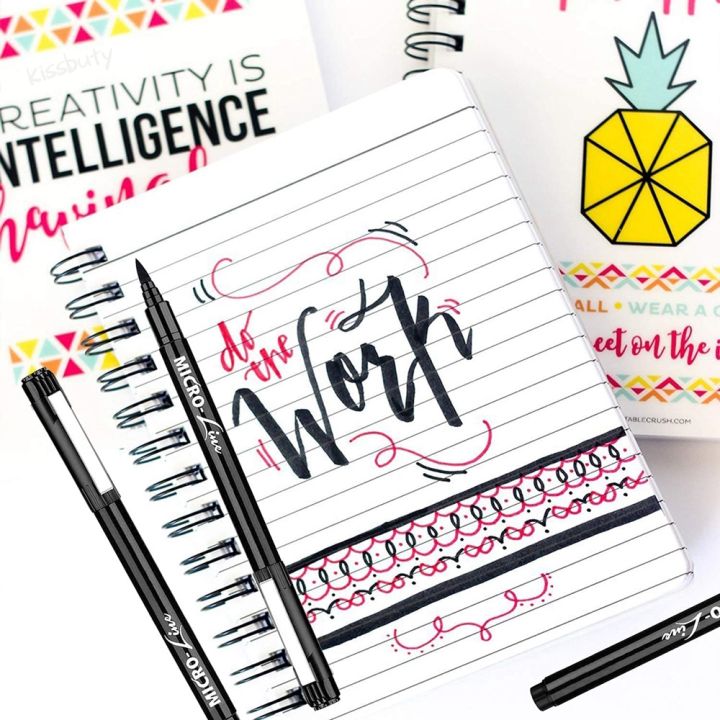 kissbuty
REATIVITY IS
NTELLIGENCE
having
do
the
Work
MICRO-Line
MICRO-Line
RO-Line
ALL • WEAR A
eet on the i
TABLECRUSH.COM